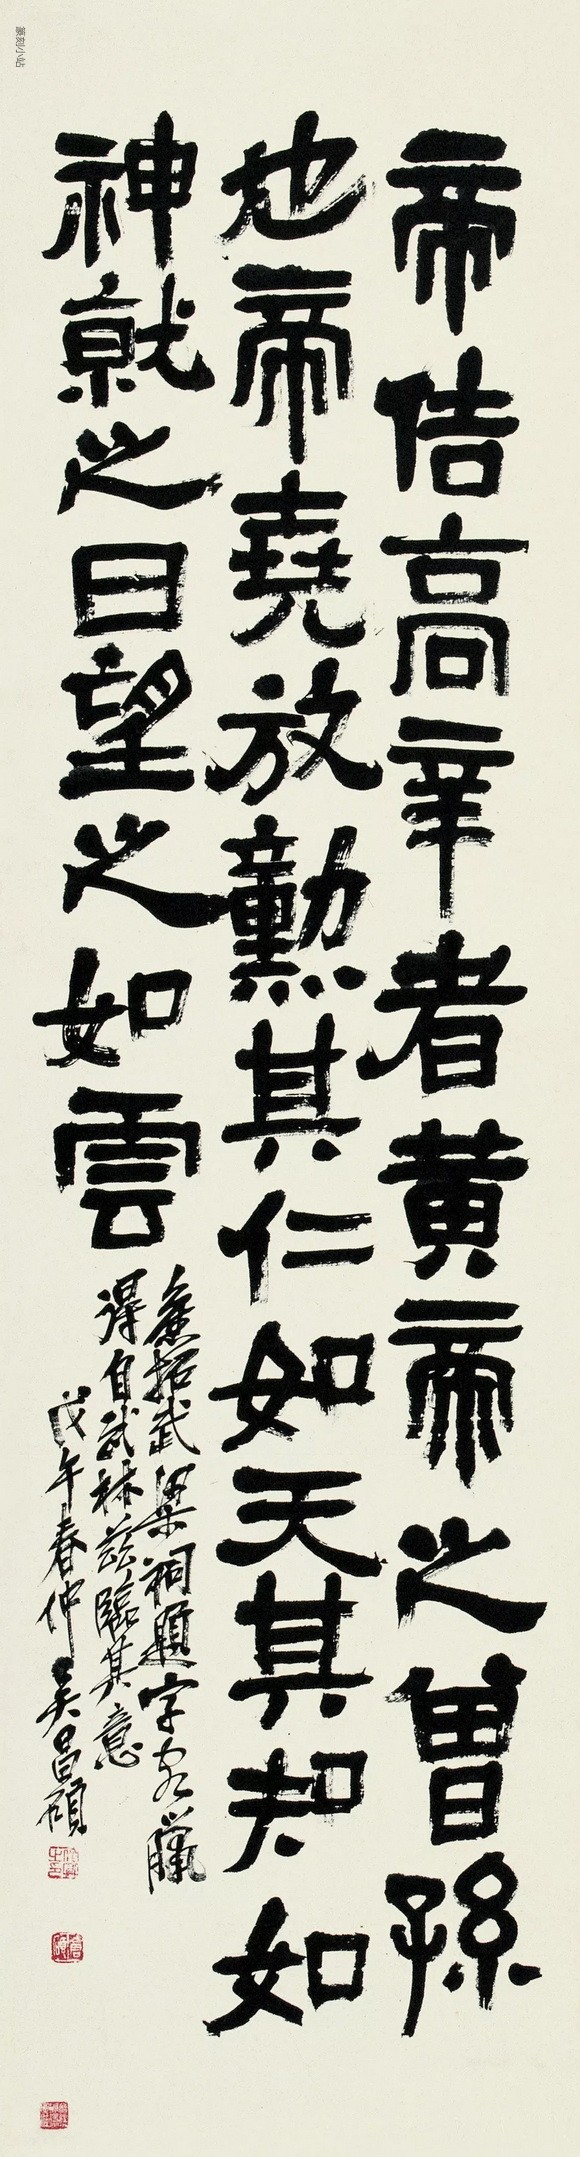 帝佶高辛者黄帝之曽孫
也帝堯放勳其仁如天其知如
神就之日望之如雲
拓武梁祠題字客臘
得自武林茲臨其意
戊午春仲吴昌碩
篆刻小站